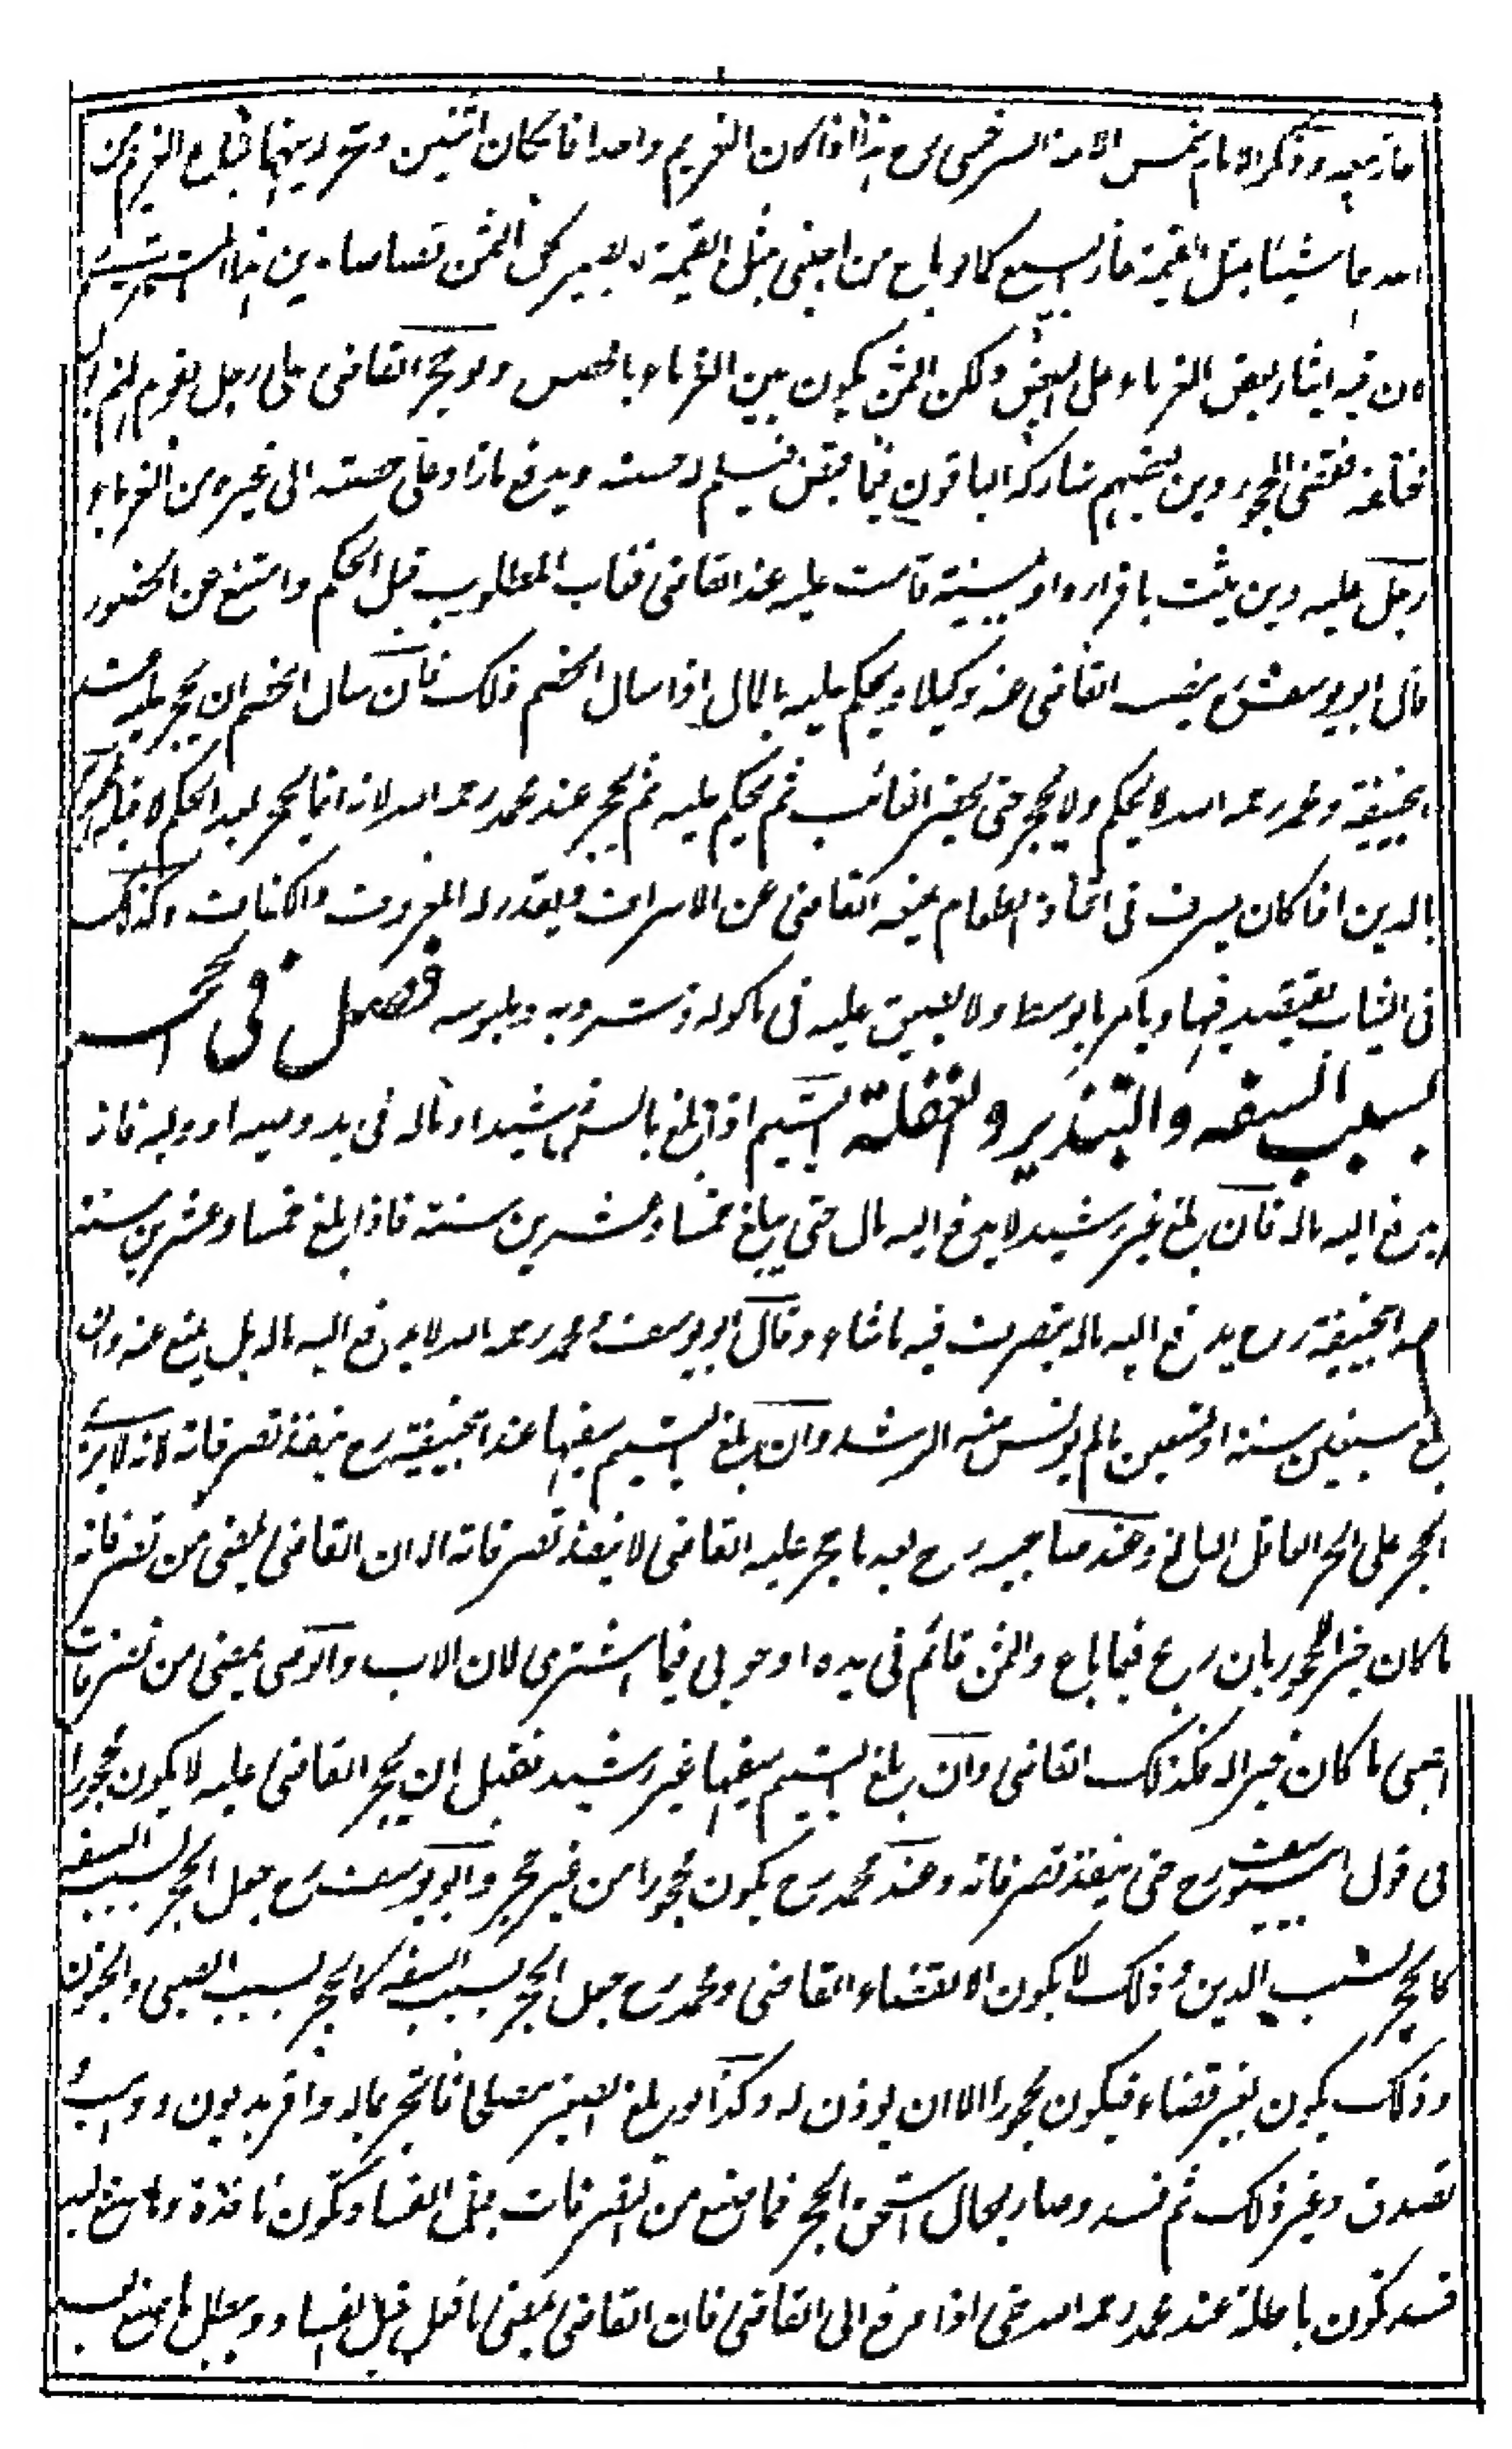 جاز بيعه وذكر الامام شمس الائمة السرخسى رح هذا اذا كان الغريم واحدا فان كان اثنين وتحر دينهما فباع الغريم من
احدهما شيئا بمثل القيمة جاز البيع كما لو باع من اجنبى بمثل القيمة ولا يصير كل الثمن قصاصا بدين هذا المشترى
لان فيه ايثار بعض الغرماء على البعض ولكن الثمن يكون بين الغرماء بالحصص ولو حجر القاضى على رجل لقوم لهم ديون
مختلفة فقضى المحجور دين بعضهم شاركه الباقون فيما قبض فيسلم له حصته ويدفع ما زاد على حصته الى غيره من الغرماء
رجل عليه دين يثبت باقراره او ببينة قامت عليه عند القاضى فغاب المطلوب قبل الحكم وامتنع عن الحضور
قال ابو يوسف رح ينصب القاضى عنه وكيلا ويحكم عليه بالمال اذا سال الخصم ذلك فان سال الخصم ان يحجر عليه عند
ابيحنيفة ومحمد رحمه الله لا يحكم ولا يحجر حتى يحضر الغائب ثم يحكم عليه ثم يحجر عند محمد رحمه الله لانه انما يحجر بعد الحكم لا قبله المحجور
بالدين اذا كان يسرف فى اتخاذ الطعام يمنعه القاضى عن الاسراف ويقدر له المعروف والكفاف وكذلك
فى الثياب يقتصد فيها ويامر بالوسط ولا يضيق عليه فى ماكوله ومشروبه وملبوسه فصل فى الحجر
بسبب السفه والتبذير والغفلة اليتيم اذا بلغ بالسن رشيدا وماله فى يد وصيه او وليه فانه
يدفع اليه ماله فان بلغ غير رشيد لا يدفع اليه ماله حتى يبلغ خمسا وعشرين سنة فاذا بلغ خمسا وعشرين سنة
عند ابيحنيفة رح يدفع اليه ماله يتصرف فيه ما شاء وقال ابو يوسف ومحمد رحمه الله لا يدفع اليه ماله بل يمنع عنه وان
بلغ سبعين سنة او تسعين ما لم يونس منه الرشد وان بلغ اليتيم سفيها عند ابيحنيفة رح ينفذ تصرفاته لانه لا يرى
الحجر على الحر العاقل البالغ وعند صاحبيه رح بعد ما حجر عليه القاضى لا ينفذ تصرفاته الا ان القاضى يمضى من تصرفاته
ما كان خيرا للمحجور بان ربح فيما باع والثمن قائم فى يده او حوبى فيما اشترى لان الاب والوصى يمضى من تصرفات
الصبى ما كان خيرا له فكذلك القاضى وان بلغ اليتيم سفيها غير رشيد فقبل ان يحجر القاضى عليه لا يكون محجورا
فى قول ابى يوسف رح حتى ينفذ تصرفاته وعند محمد رح يكون محجورا من غير حجر وابو يوسف رح جعل الحجر بسبب السفه
كالحجر بسبب الدين وذلك لا يكون الا بقضاء القاضى ومحمد رح جعل الحجر بسبب السفه كالحجر بسبب الصبى والجنون
وذلك يكون بغير قضاء فيكون محجورا الا ان يوذن له وكذا لو بلغ الصغير مصلحا فاتجر بماله واقر بديون ووهب و
تصدق وغير ذلك ثم فسد وصار بحال استحق الحجر فما صنع من التصرفات قبل الفساد تكون نافذة وما صنع بعد
فسد تكون باطلة عند محمد رحمه الله حتى اذا رفع الى القاضى فان القاضى يمضى ما فعل قبل الفساد ويبطل ما صنع بعد